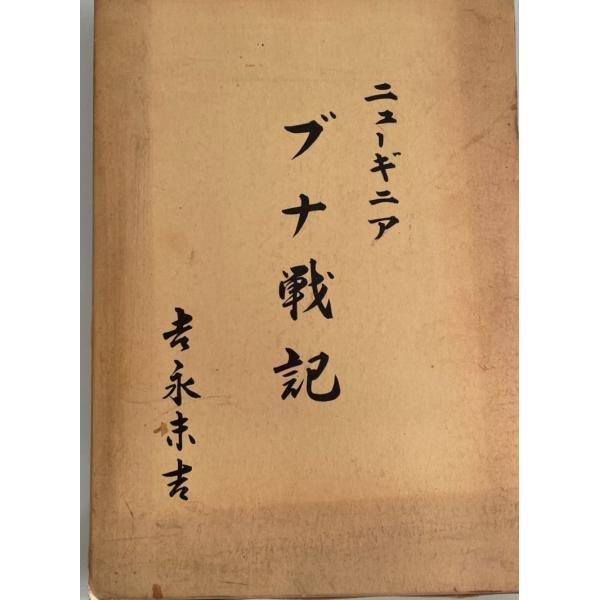 ニューギニア
ブナ戦記
吉永末吉